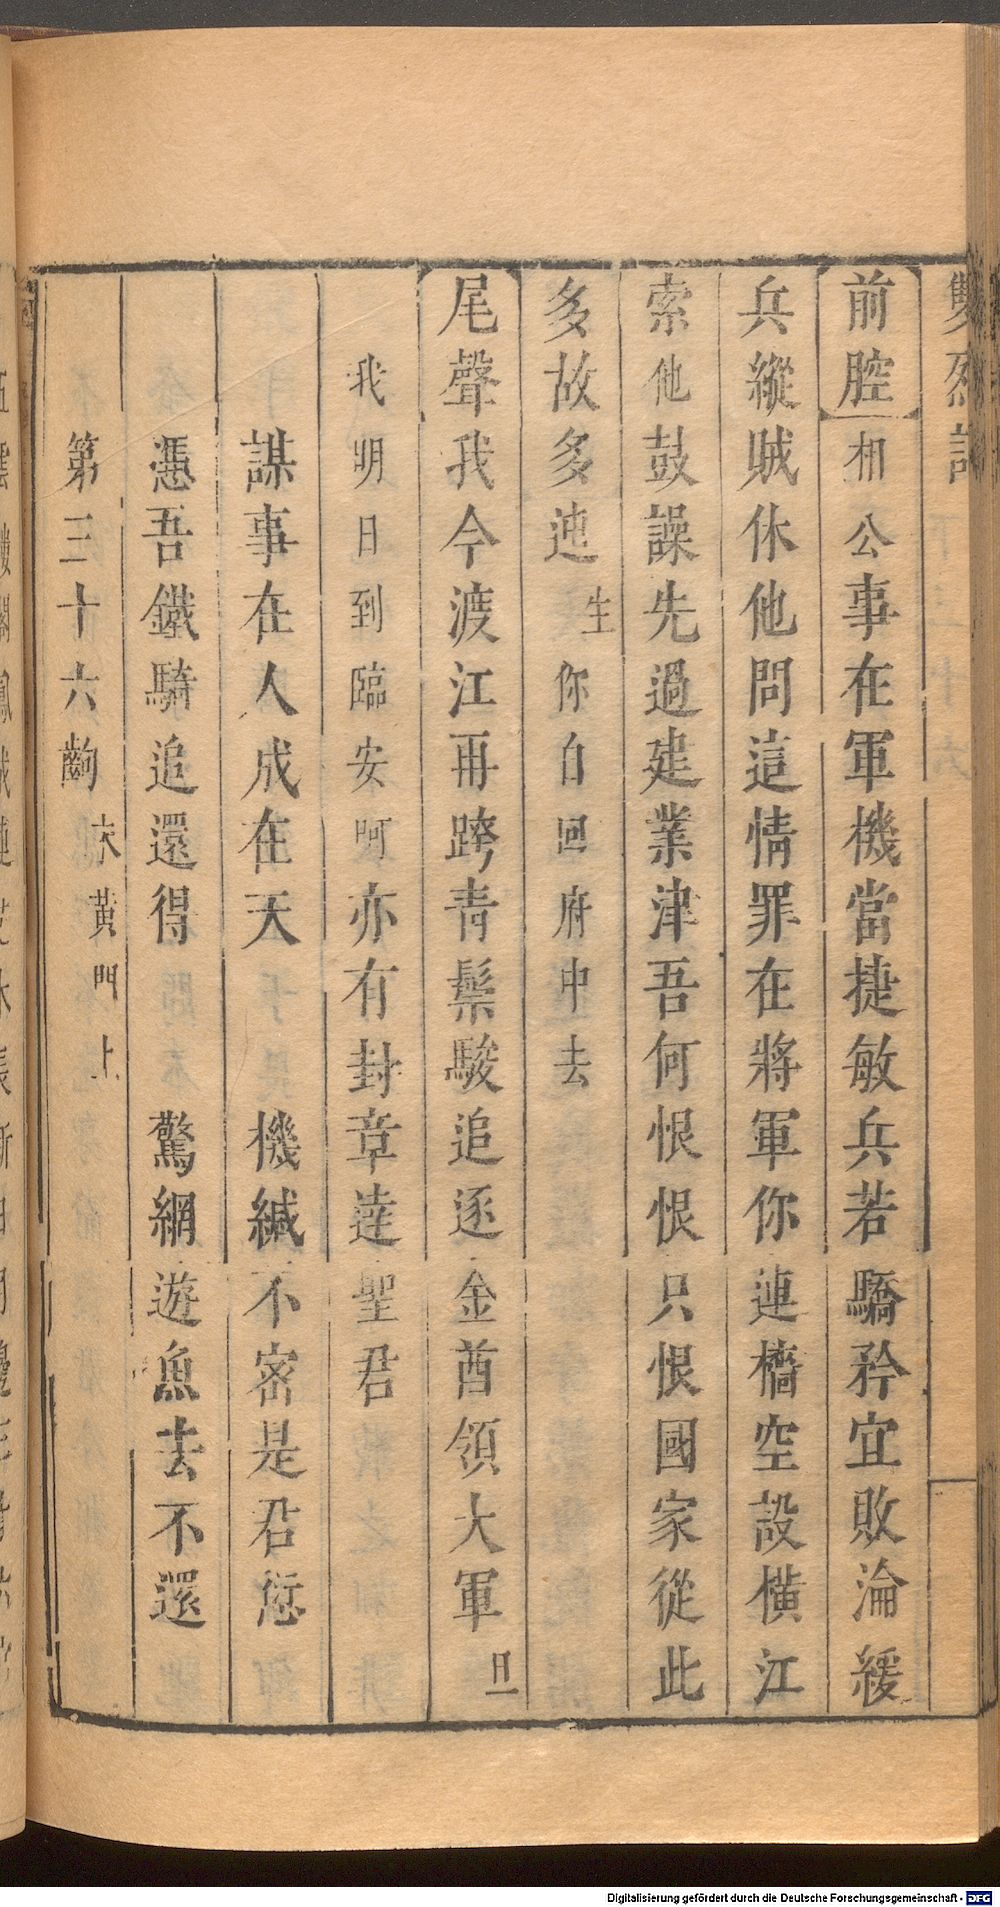 雙烈記
前腔相公事在軍機當捷敏兵若驕矜宜敗淪緩
兵縱賊休他問這情罪在將軍你連檣空設橫江
索他鼓譟先過建業津吾何恨恨只恨國家從此
多故多迍生你自回府中去
尾聲我今渡江再跨青鬃駿追逐金酋領大軍旦
我明日到臨安呵亦有封章達聖君
謀事在人成在天 機緘不密是君愆
憑吾鐵騎追還得 驚網遊魚去不還
第三十六齣末黃門上
Digitalisierung gefördert durch die Deutsche Forschungsgemeinschaft - DFG